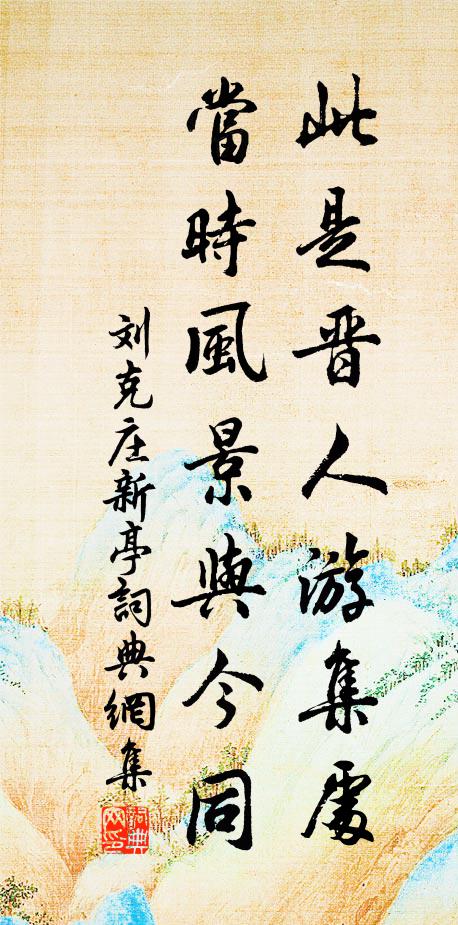 此是晋人游集處
當時風景與今同
刘克庄新亭詞典網集
詞典網印